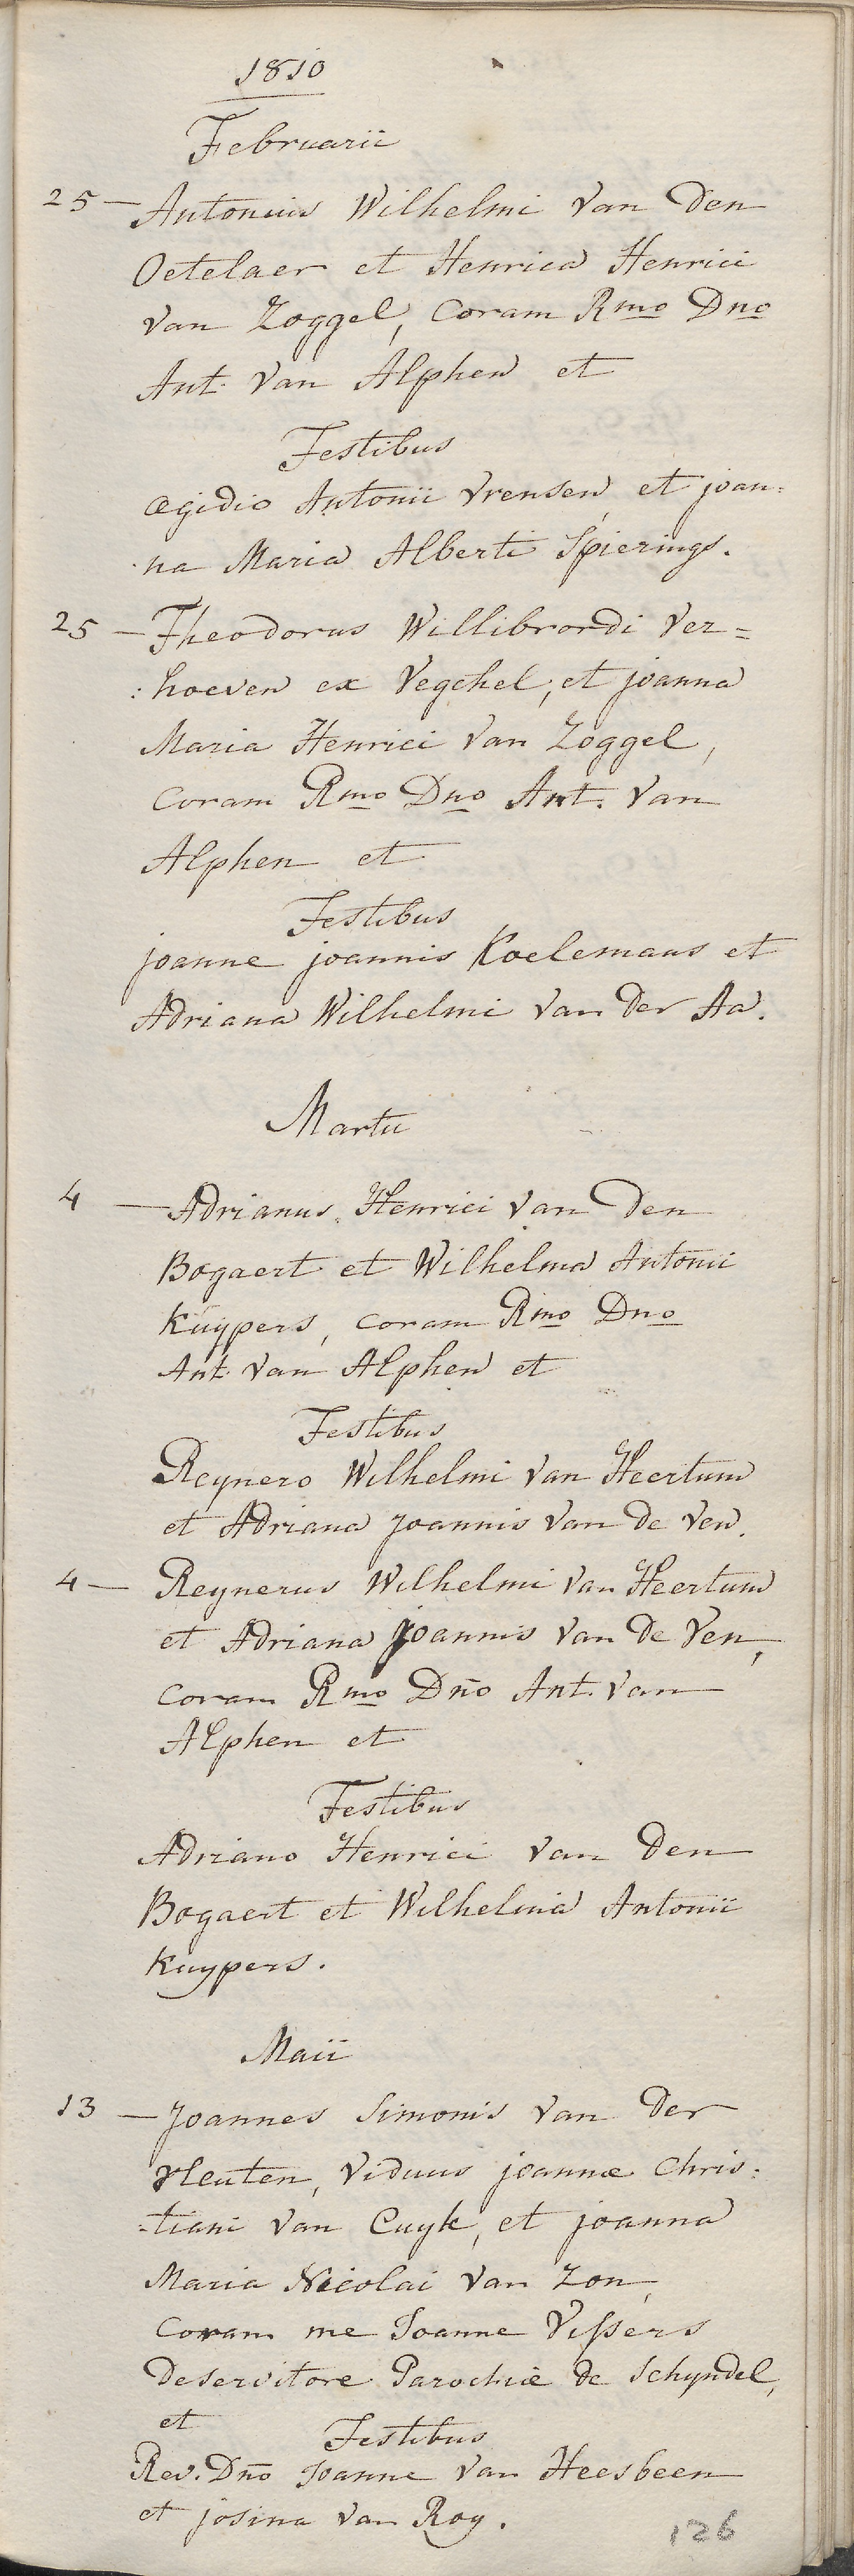 1810
Februarii
25 — Antonius Wilhelmi Van Den
Oetelaer et Henrica Henrici
Van Zoggel, Coram Rmo Dno
Ant. Van Alphen et
Testibus
Ægidio Antonii Vrensen, et joan:
:na Maria Alberti Spierings.
25 — Theodorus Willibrordi Ver=
:hoeven ex Vegchel, et joanna
Maria Henrici Van Zoggel,
Coram Rmo Dno Ant. Van
Alphen et
Testibus
joanne joannis Koelemans et
Adriana Wilhelmi Van Der Aa.
Martii
4 — Adrianus Henrici Van Den
Bogaert et Wilhelma Antonii
Kuypers, coram Rmo Dno
Ant. Van Alphen et
Testibus
Reynero Wilhelmi Van Heertum
et Adriana Joannis Van De Ven.
4 — Reynerus Wilhelmi Van Heertum
et Adriana Joannis Van De Ven,
Coram Rmo Dno Ant. Van
Alphen et
Testibus
Adriano Henrici Van Den
Bogaert et Wilhelma Antonii
Kuypers.
Maii
13 — Joannes Simonis Van Der
Vleuten, Viduus joannæ Chris:
:tiani Van Cuyk, et joanna
Maria Nicolai Van Zon,
Coram me Joanne Vissers
Deservitore Parochiæ de Schyndel,
et Testibus
Rev. Dno Joanne Van Heesbeen
et josina Van Roy.
126